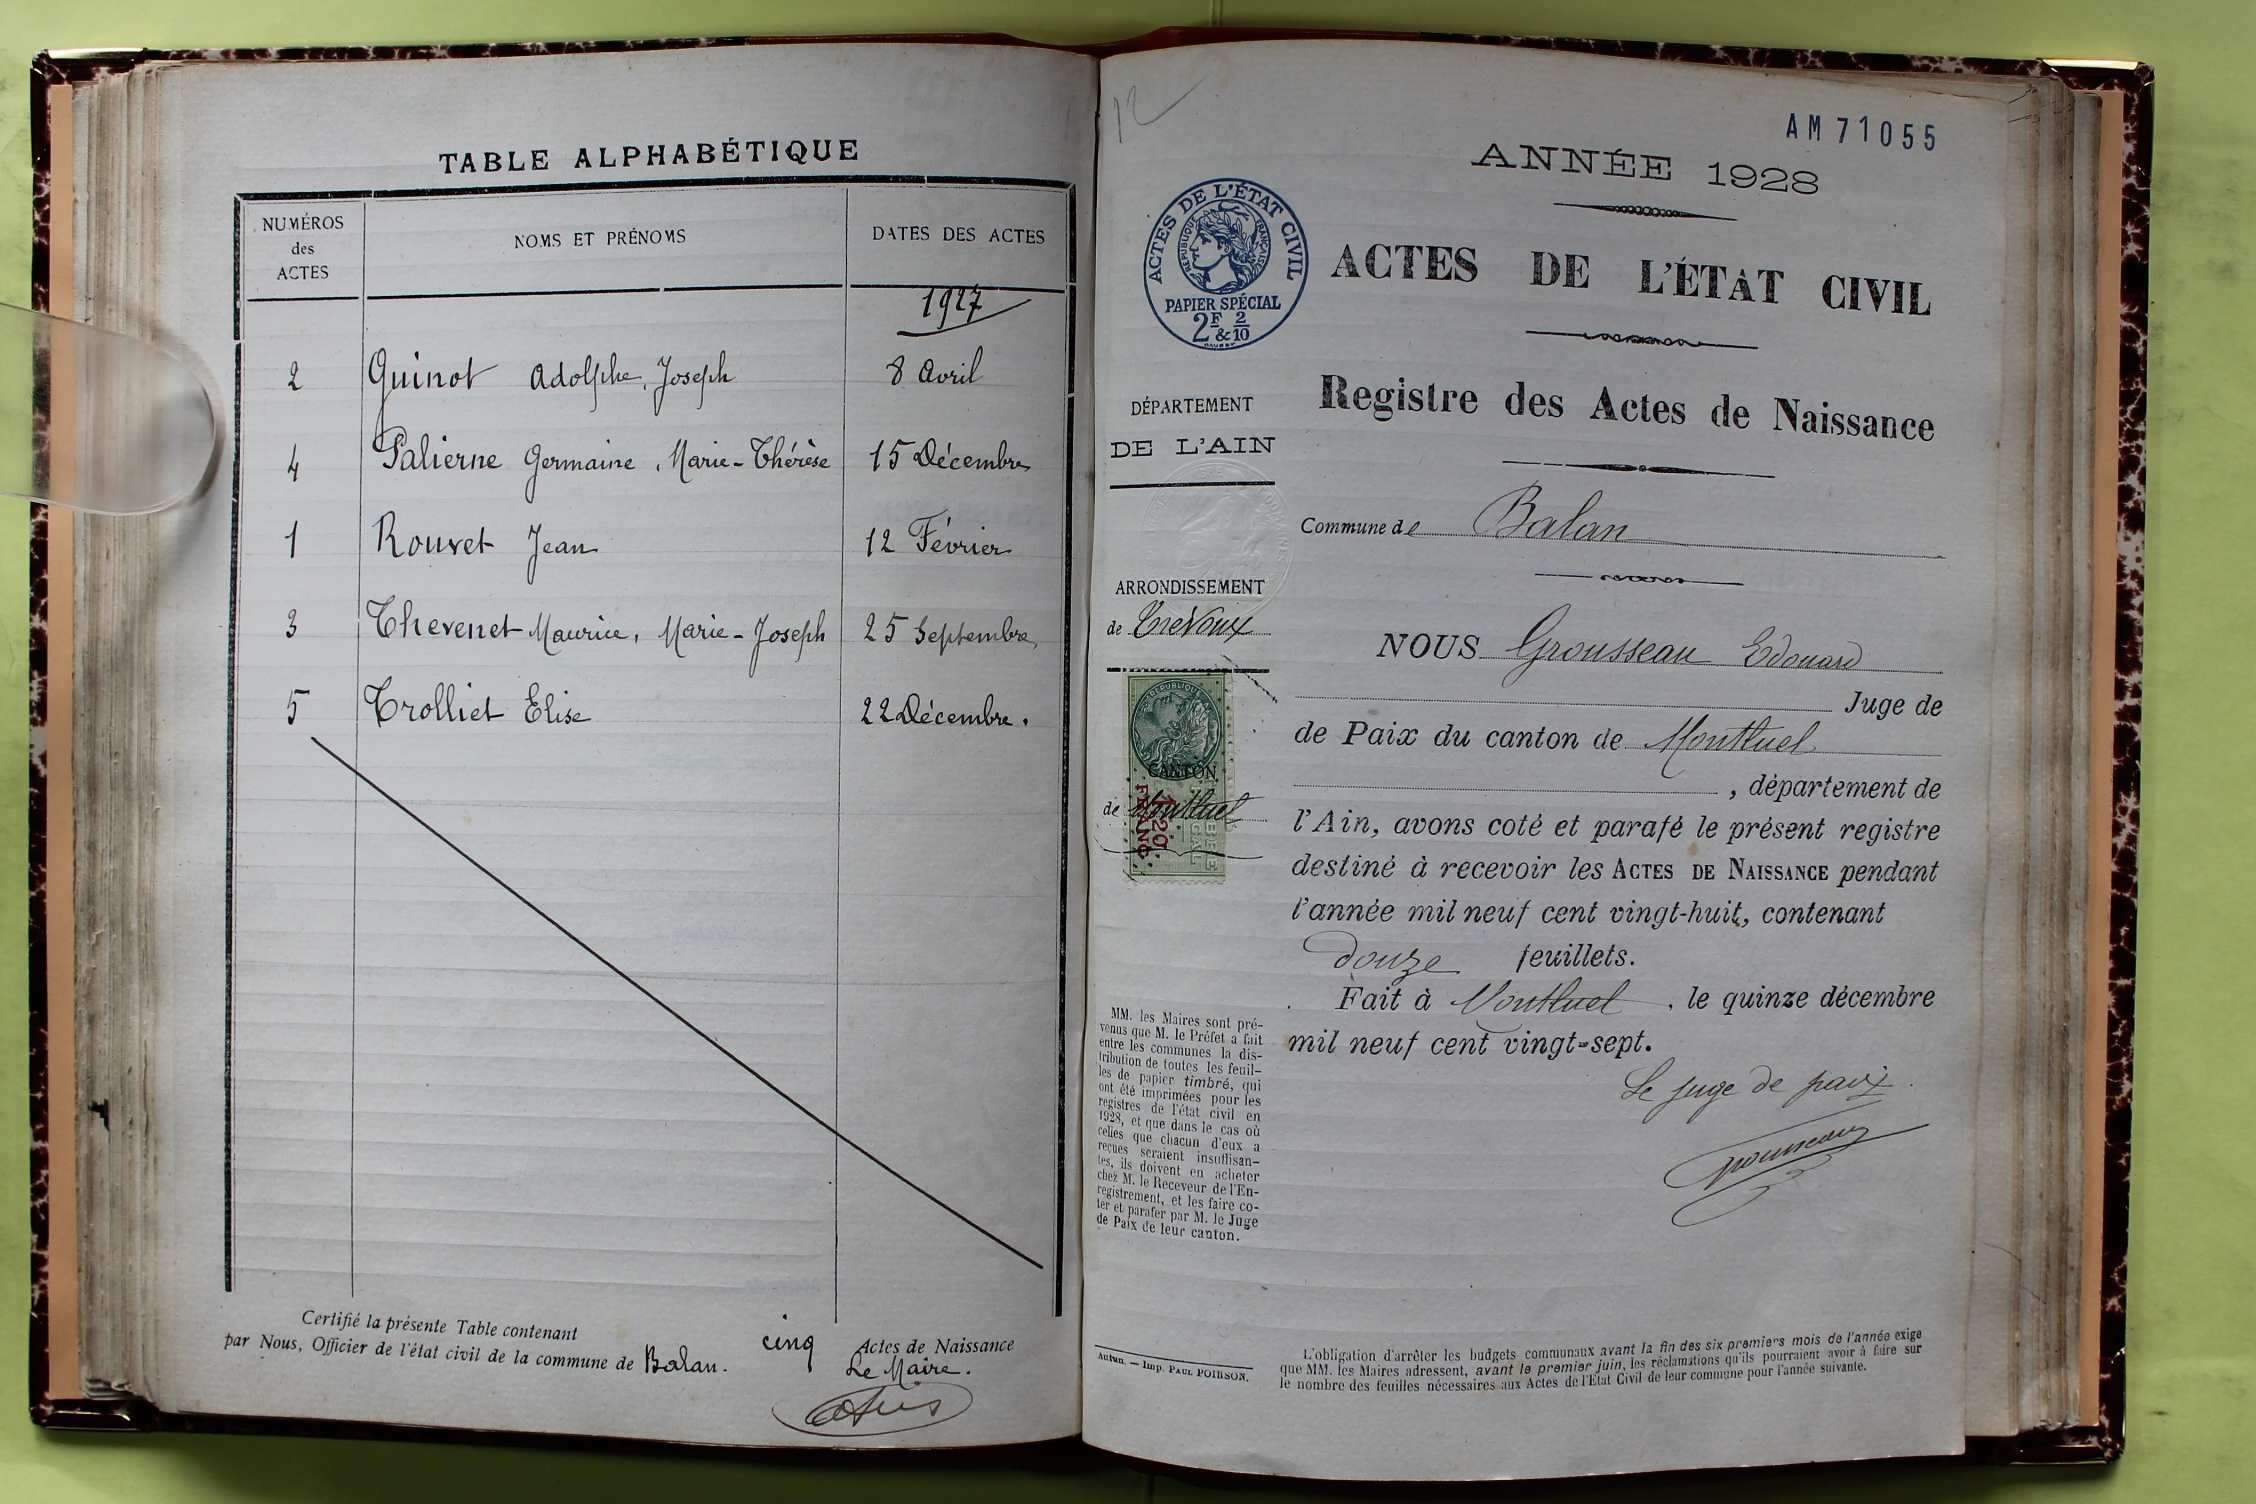 TABLE ALPHABÉTIQUE
NUMÉROS
des
ACTES
NOMS ET PRÉNOMS
DATES DES ACTES
1927
2 Guinot Adolphe, Joseph 8 Avril
4 Palierne Germaine, Marie-Thérèse 15 Décembre
1 Rouvet Jean 12 Février
3 Thevenet Maurice, Marie-Joseph 25 Septembre
5 Trolliet Elise 22 Décembre.
Certifié la présente Table contenant cinq Actes de Naissance
par Nous, Officier de l'état civil de la commune de Balan. Le Maire.
12
AM 71055
ANNÉE 1928
ACTES DE L'ÉTAT CIVIL
RÉPUBLIQUE FRANÇAISE
PAPIER SPÉCIAL
2F & 2/10
ACTES DE L'ÉTAT CIVIL
Registre des Actes de Naissance
DÉPARTEMENT
DE L'AIN
Commune de Balan
ARRONDISSEMENT
de Trévoux
NOUS Grousseau Edouard
Juge de
de Paix du canton de Montluel
, département de
l'Ain, avons coté et parafé le présent registre
destiné à recevoir les ACTES DE NAISSANCE pendant
l'année mil neuf cent vingt-huit, contenant
douze feuillets.
Fait à Montluel, le quinze décembre
mil neuf cent vingt-sept.
Le juge de paix.
Grousseau
CANTON
de Montluel
1F20
FRANC
MM. les Maires sont pré-
venus que M. le Préfet a fait
entre les communes la dis-
tribution de toutes les feuil-
les de papier timbré, qui
ont été imprimées pour les
registres de l'état civil en
1928, et que dans le cas où
celles que chacun d'eux a
reçues seraient insuffisan-
tes, ils doivent en acheter
chez M. le Receveur de l'En-
registrement, et les faire co-
ter et parafer par M. le Juge
de Paix de leur canton.
Autun. — Imp. PAUL POIRSON.
L'obligation d'arrêter les budgets communaux avant la fin des six premiers mois de l'année exige
que MM. les Maires adressent, avant le premier juin, les réclamations qu'ils pourraient avoir à faire sur
le nombre des feuilles nécessaires aux Actes de l'Etat Civil de leur commune pour l'année suivante.